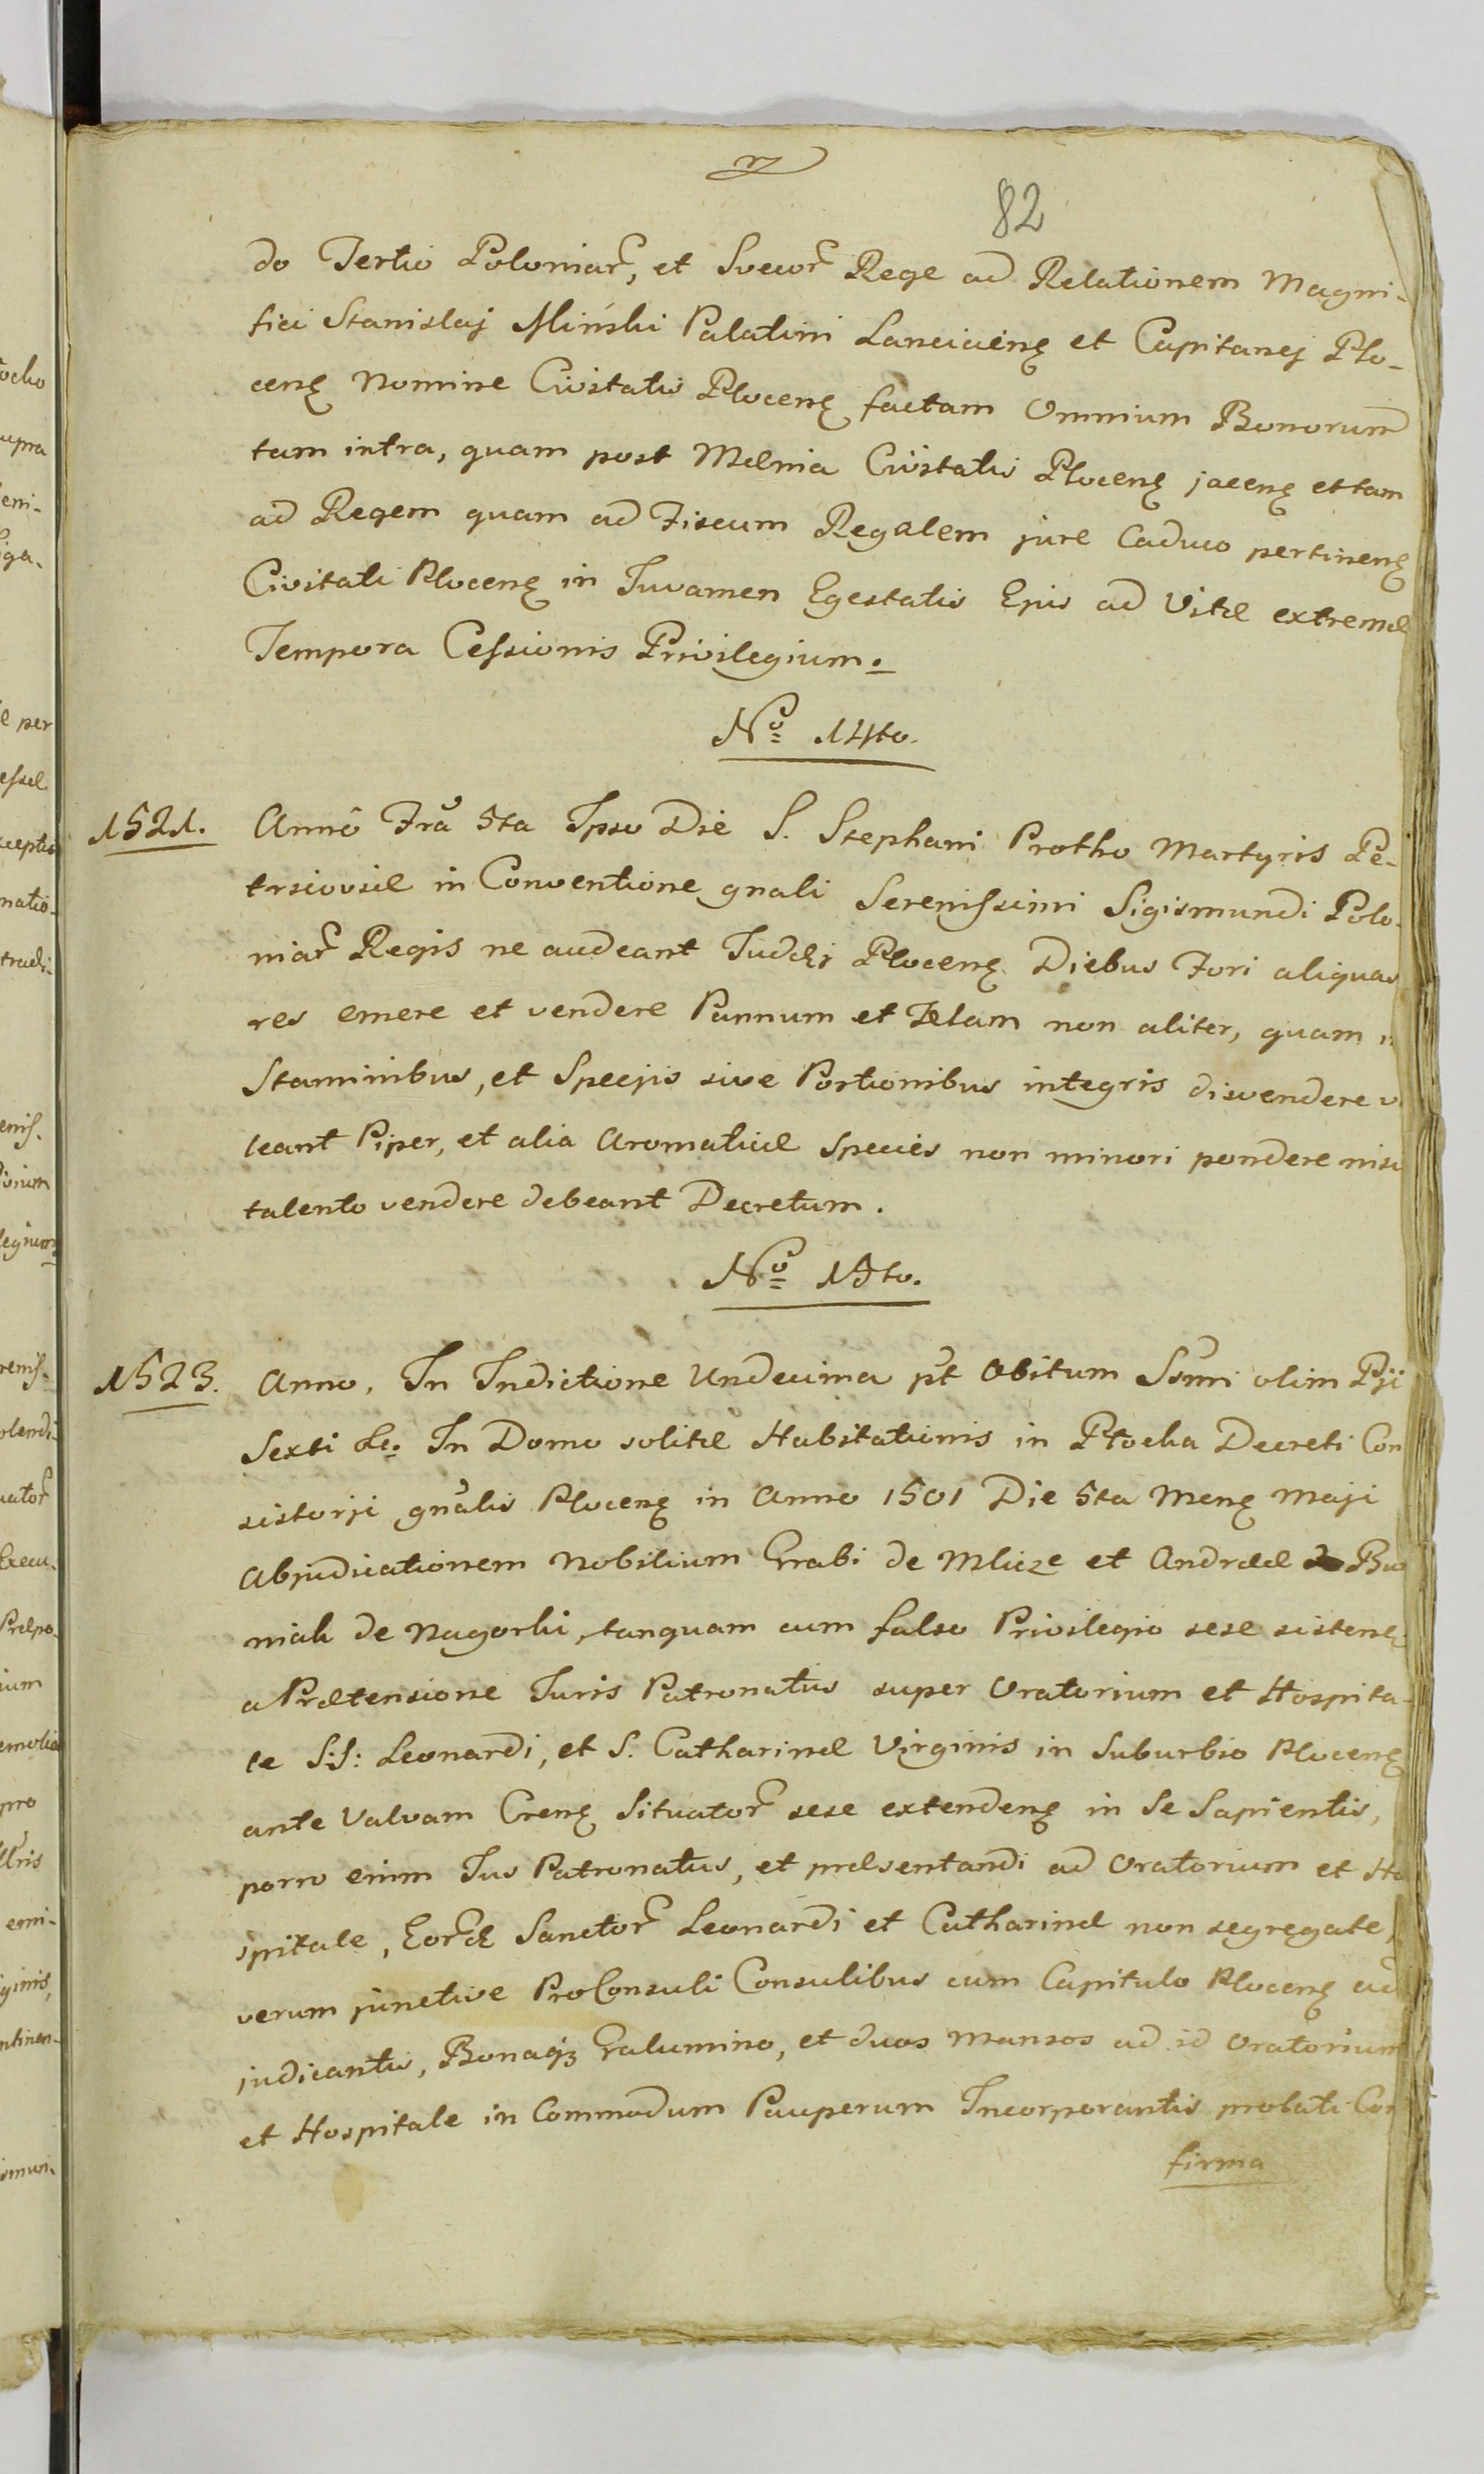 82
do Tertio Poloniar, et Svecor Rege ad Relationem Magni-
fici Stanislaj Miński Palatini Lanciciens et Capitanej Plo-
cens Nomine Civitatis Plocens factam Omnium Bonorum
tam intra, quam post Mænia Civitatis Plocens jacens et tam
ad Regem quam ad Fiscum Regalem jure Caduco pertinens
Civitati Plocens in Juvamen Egestatis Ejus ad Vitæ extremæ
Tempora Cessionis Privilegium.
No 14to.
1521. Anno Fra 5ta Ipso Die S. Stephani Protho Martyris Pe-
tricoviæ in Conventione gnali Serenissimi Sigismundi Polo-
niar Regis ne audeant Judæi Plocens Diebus Fori aliquas
res emere et vendere Pannum et Telam non aliter, quam
Staminibus, et Specijs sive Portionibus integris disvendere
leant Piper, et alia Aromaticæ Species non minori pondere nisi
talento vendere debeant Decretum.
No 15to.
1523. Anno, In Indictione Undecima pt Obitum Ssmi olim Pij
Sexti &c. In Domo solitæ Habitationis in Płocka Decreti Con
sistorji gnalis Plocens in Anno 1501 Die 5ta Mens Maji
Abjudicationem Nobilium Grabi de Mlicze et Andreæ de
niak de Nagorki, tanquam cum falso Privilegio sese sistens
a Prætensione Juris Patronatus super Oratorium et Hospita-
le S.S: Leonardi, et S. Catharinæ Virginis in Suburbio Plocens
ante Valvam Crens Situator sese extendens in se Sapientis,
porro enim Jus Patronatus, et præsentandi ad Oratorium et Ho
spitale, Eorde Sanctor Leonardi et Catharinæ non segregate,
verum junctive ProConsuli Consulibus cum Capitulo Plocens ad
judicantis, Bonaq3 Galumino, et duos Mansos ad id Oratorium
et Hospitale in Commodum Pauperum Incorporantis probati Con
firma